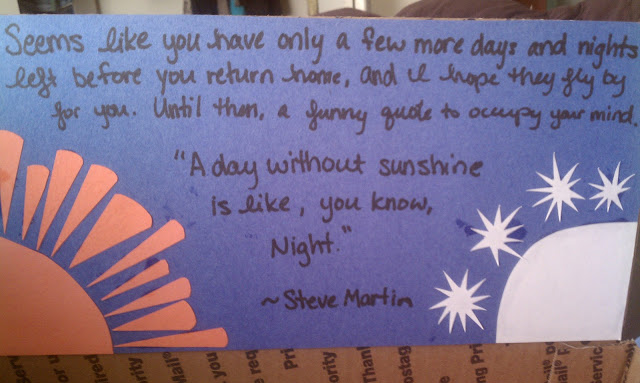 Seems like you have only a few more days and nights
left before you return home, and I hope they fly by
for you. Until then, a funny quote to occupy your mind.
"A day without sunshine
is like, you know,
Night."
~ Steve Martin